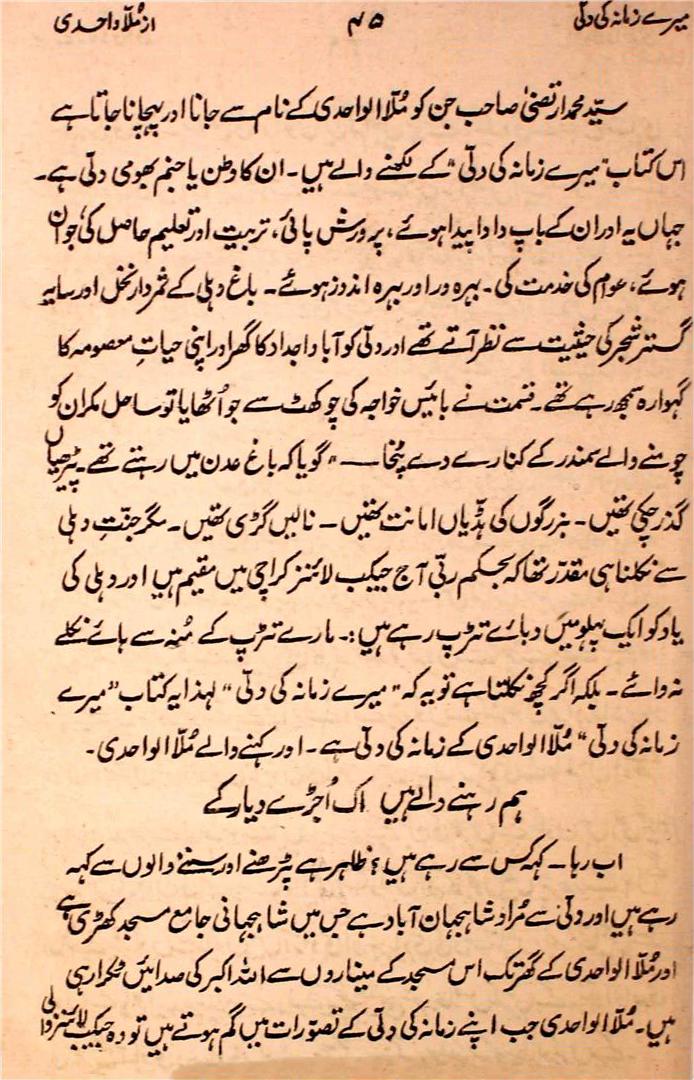 میرے زمانہ کی دلّی ۴۵ از مُلّا واحدی
سیّد محمد ارتضیٰ صاحب جن کو مُلّا الواحدی کے نام سے جانا اور پہچانا جاتا ہے
اس کتاب "میرے زمانہ کی دلّی" کے لکھنے والے ہیں۔ ان کا وطن یا جنم بھومی دلّی ہے۔
جہاں یہ اور ان کے باپ دادا پیدا ہوئے، پرورش پائی، تربیت اور تعلیم حاصل کی، جوان
ہوئے، عوام کی خدمت کی۔ بہرہ ور اور بہرہ اندوز ہوئے۔ باغ دہلی کے ثمردار نخل اور سایہ
گستر شجر کی حیثیت سے نظر آتے تھے اور دلّی کو آبا و اجداد کا گھر اور اپنی حیاتِ معصومہ کا
گہوارہ سمجھ رہے تھے۔ قسمت نے بائیس خواجہ کی چوکھٹ سے جو اُٹھایا تو ساحل مکران کو
چومنے والے سمندر کے کنارے دے پٹخا — "گویا کہ باغ عدن میں رہتے تھے۔ پیڑھیاں
گذر چکی تھیں۔ بزرگوں کی ہڈّیاں امانت تھیں — نالیں گڑی تھیں۔ مگر جنّتِ دہلی
سے نکلنا ہی مقدّر تھا کہ بحکم ربّی آج جیکب لائنز کراچی میں مقیم ہیں اور دہلی کی
یاد کو ایک پہلو میں دبائے تڑپ رہے ہیں:۔ مارے تڑپ کے مُنہ سے ہائے نکلے
نہ وائے۔ بلکہ اگر کچھ نکلتا ہے تو یہ کہ "میرے زمانہ کی دلّی" لہذا یہ کتاب "میرے
زمانہ کی دلّی" مُلّا الواحدی کے زمانہ کی دلّی ہے۔ اور کہنے والے مُلّا الواحدی۔
ہم رہنے والے ہیں اک اُجڑے دیار کے
اب رہا۔ کہہ کس سے رہے ہیں؟ ظاہر ہے پڑھنے اور سننے والوں سے کہہ
رہے ہیں اور دلّی سے مُراد شاہجہان آباد ہے جس میں شاہجہانی جامع مسجد کھڑی ہے
اور مُلّا الواحدی کے گھر تک اس مسجد کے میناروں سے اللہ اکبر کی صدائیں ٹکرا رہی
ہیں۔ مُلّا الواحدی جب اپنے زمانہ کی دلّی کے تصوّرات میں گم ہوتے ہیں تو وہ جیکب لائنز والی